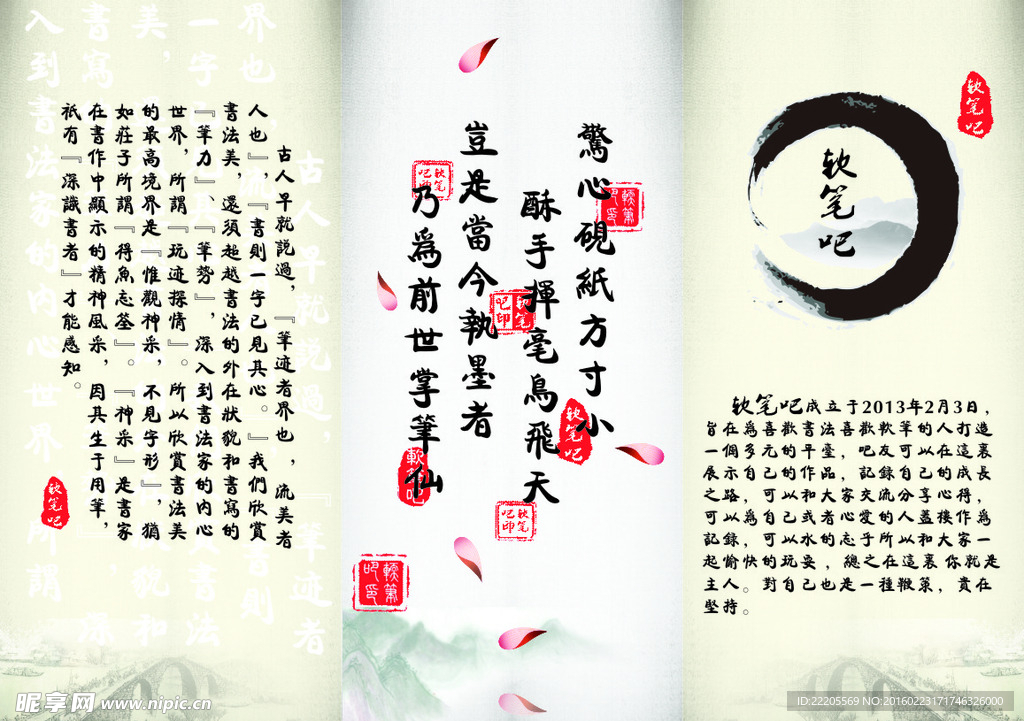 軟笔吧
軟笔吧
軟笔吧成立于2013年2月3日，
旨在為喜歡書法喜歡軟筆的人打造
一個多元的平臺，吧友可以在這裏
展示自己的作品，記錄自己的成長
之路，可以和大家交流分享心得，
可以為自己或者心愛的人蓋楼作為
記錄，可以水的志乎所以和大家一
起愉快的玩耍，總之在這裏你就是
主人。對自己也是一種鞭策，貴在
堅持。
驚心硯紙方寸小
酥手揮毫鳥飛天
豈是當今執墨者
乃為前世掌筆仙
軟笔吧印
軟筆吧印
軟笔吧印
軟笔吧
軟笔吧
軟笔吧印
軟筆吧印
古人早就説過，『筆迹者界也，流美者
人也』，『書則一字已見其心。』我們欣賞
書法美，還須超越書法的外在狀貌和書寫的
『筆力』、『筆勢』，深入到書法家的内心
世界，所謂『玩迹探情』。所以欣賞書法美
的最高境界是『惟觀神采，不見字形』，猶
如莊子所謂『得魚忘荃』。『神采』是書家
在書作中顯示的精神風采，因其生于用筆，
祇有『深識書者』才能感知。
軟笔吧
昵享网 www.nipic.cn
ID:22205569 NO:20160223171746326000